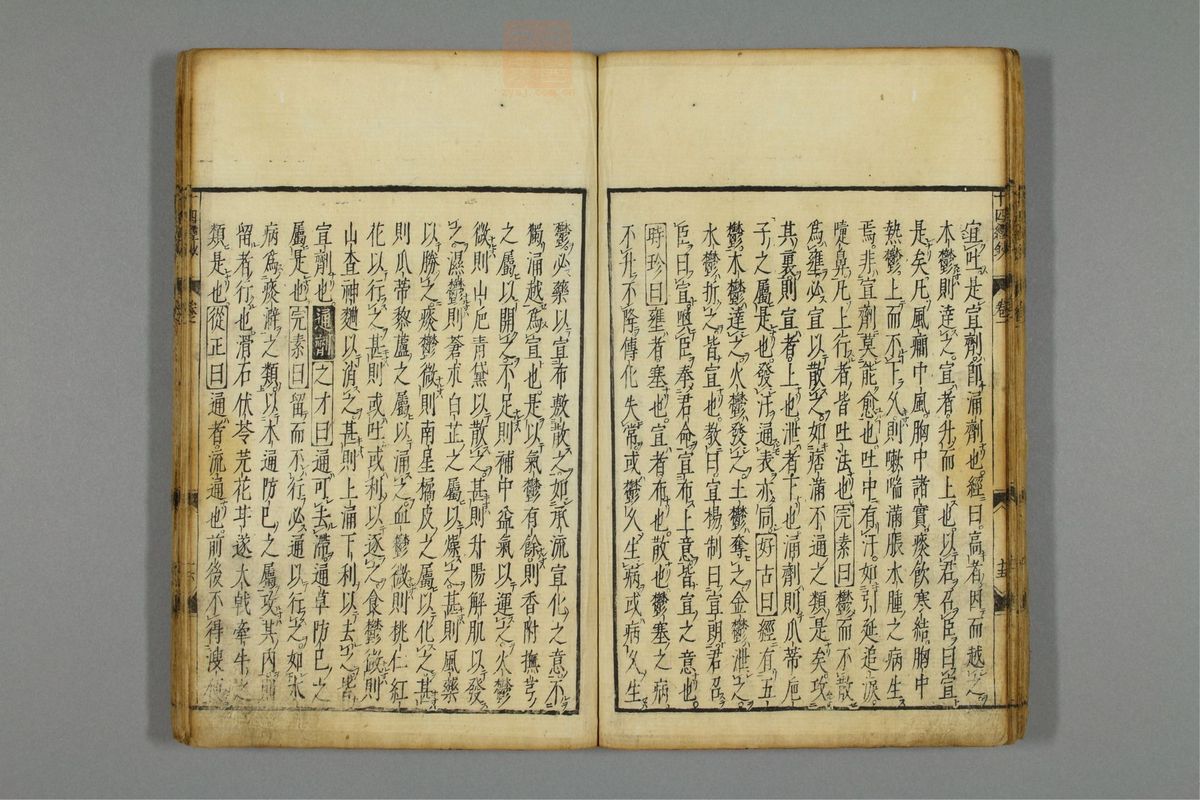 宣吐是宣劑即涌劑也經曰高者因而越之
木鬱則達之宣者升而上也以君召臣曰宣
是矣凡風癇中風胸中諸實痰飲寒結胸中
熱鬱上而不下久則嗽喘滿脹水腫之病生
焉非宣劑莫能愈也吐中有汗如引延追淚
嚏鼻凡上行者皆吐法也完素曰鬱而不散
為壅必宣以散之如痞滿不通之類是矣攻
其裏則宣者上也泄者下也涌劑則瓜蒂巵
子之屬是也發汗通表亦同好古曰經有五
鬱木鬱達之火鬱發之土鬱奪之金鬱泄之
水鬱折之皆宣也教曰宣楊制曰宣朗君召
臣曰宣喚臣奉君命宣布上意皆宣之意也
時珍曰壅者塞也宣者布也散也鬱塞之病
不升不降傳化失常或鬱久生病或病久生
十四經 卷一
鬱必藥以宣布敷散之如承流宣化之意不
獨涌越為宣也是以氣鬱有餘則香附撫芎
之屬以開之不足則補中益氣以運之火鬱
微則山巵青黛以散之甚則升陽解肌以發
之濕鬱微則蒼朮白芷之屬以燥之甚則風藥
以勝之痰鬱微則南星橘皮之屬以化之甚
則瓜蒂黎蘆之屬以涌之血鬱微則桃仁紅
花以行之甚則或吐或利以逐之食鬱微則
山查神麯以消之甚則上涌下利以去之皆
宣劑也通劑之才曰通可去滯通草防已之
屬是也完素曰留而不行必通以行之如水
病為痰澼之類以木通防已之屬攻其內前
留者行也滑石伏苓芫花甘遂大戟牽牛之
類是也從正曰通者流通也前後不得溲便